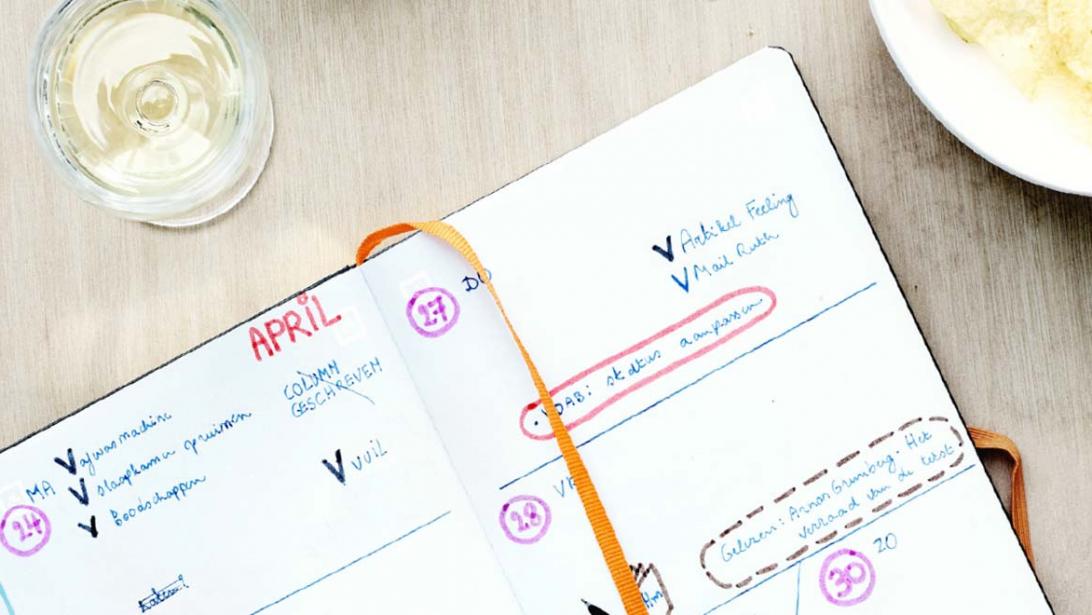 APRIL
COLUMN
GESCHREVEN
MA
24
V afwasmachine
V slaapkamer opruimen
V boodschappen
V VUIL
27
DO
V Artikel Feeling
V Mail Ruth
• VDAB: status aanpassen
28
VR
Gelezen: Arnon Grunberg. Het
verraad van de tekst.
30
ZO
Hm